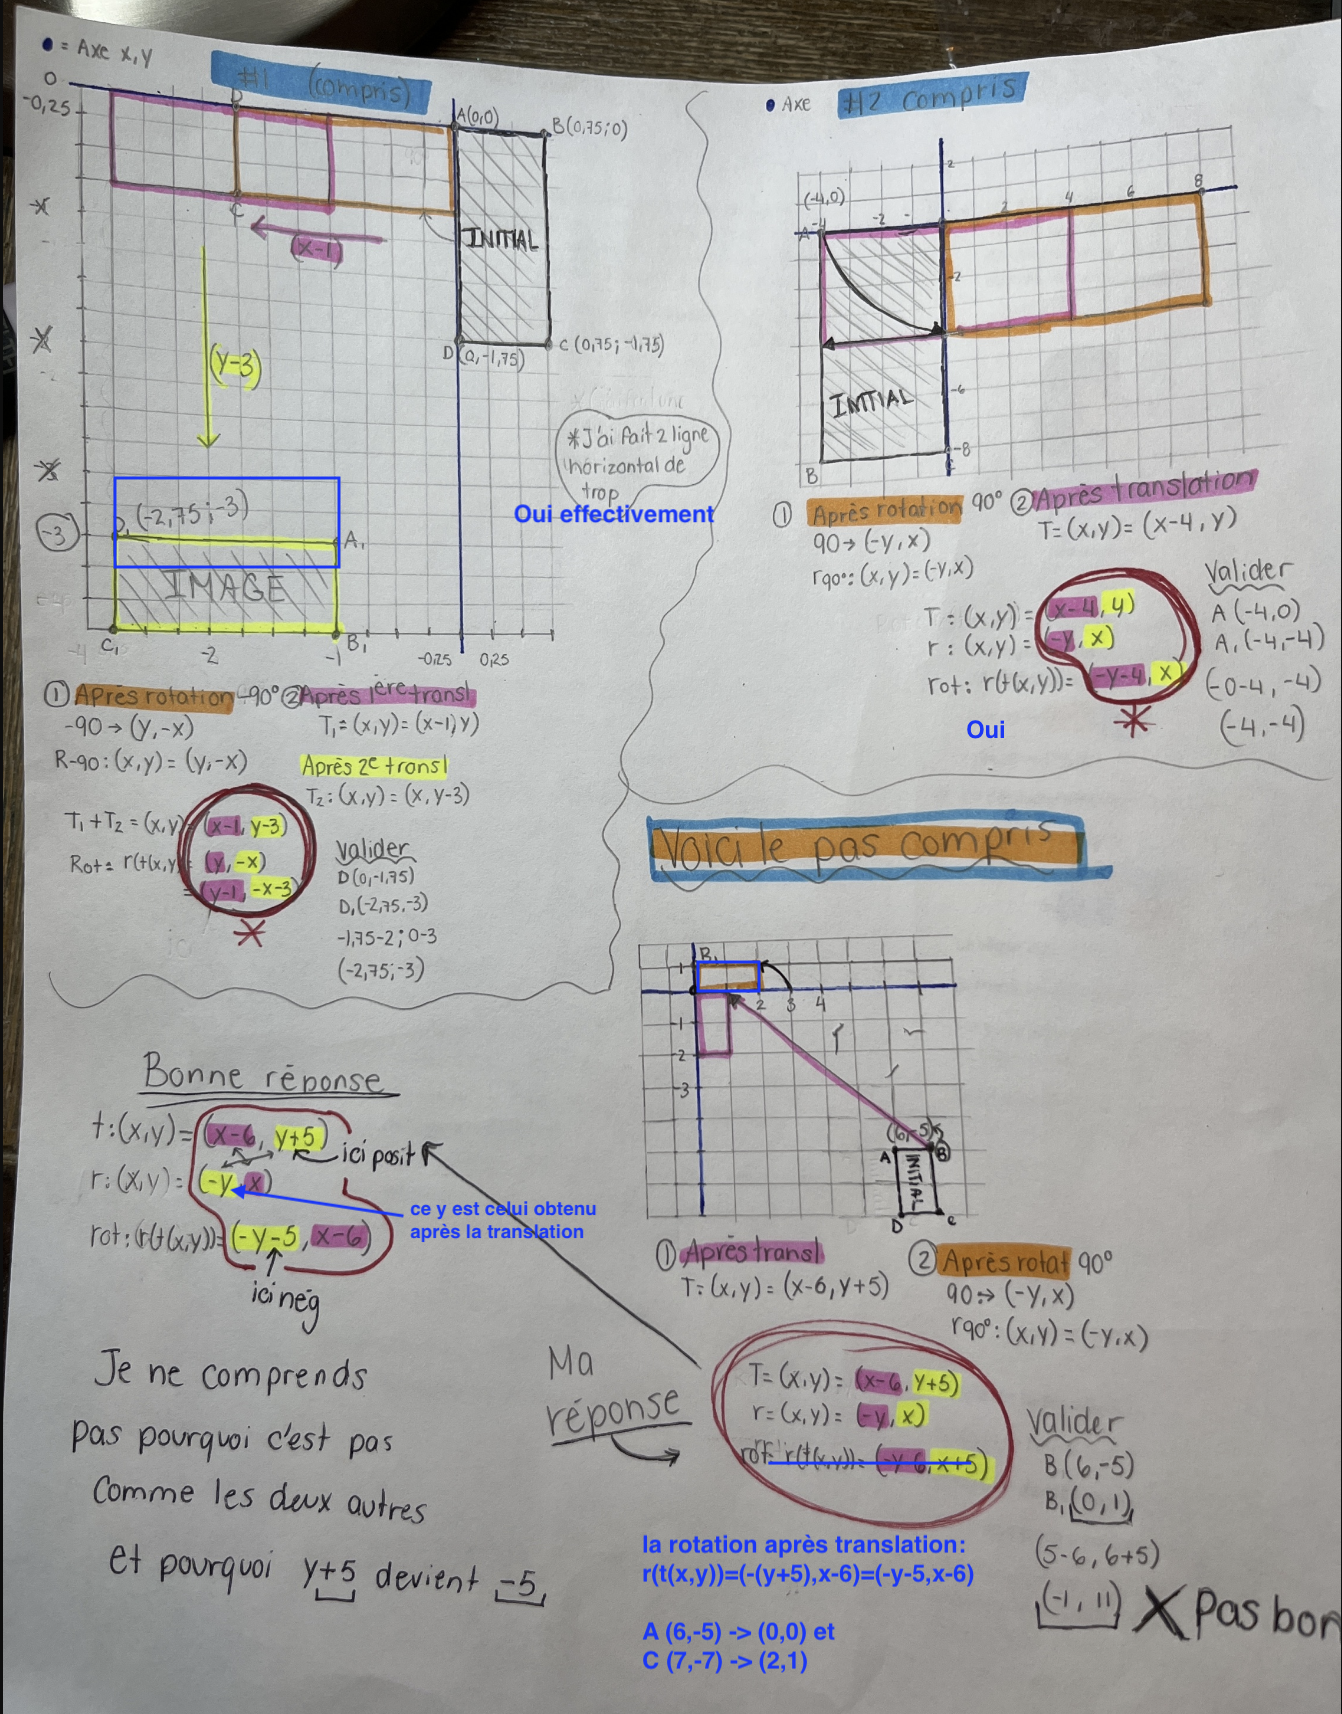 • = Axe x,y
#1 (compris)
0
-0,25
A(0,0)
B(0,75;0)
INITIAL
(x-1)
D(0,-1,75)
C(0,75;-1,75)
(y-3)
*J'ai fait 2 ligne
horizontal de
trop
Oui effectivement
(-2,75;-3)
-3
A₁
IMAGE
C₁
B₁
-4
-2
-1
-0,25
0,25
① Après rotation -90°
-90→(y,-x)
R-90:(x,y)=(y,-x)
② Après 1ère transl
T₁=(x,y)=(x-1,y)
Après 2e transl
T₂:(x,y)=(x,y-3)
T₁+T₂=(x,y)=(x-1,y-3)
Rot= r(t(x,y)=(y,-x)
=(y-1,-x-3)
*
Valider
D(0,-1,75)
D₁(-2,75,-3)
-1,75-2;0-3
(-2,75;-3)
• Axe
#2 compris
2
(-4,0)
A
-4
-2
2
4
6
8
-2
-6
-8
INITIAL
B
① Après rotation 90°
90→(-y,x)
r90°:(x,y)=(-y,x)
② Après translation
T=(x,y)=(x-4,y)
T=(x,y)=(x-4,y)
r:(x,y)=(-y,x)
rot: r(t(x,y))=(-y-4,x)
*
Oui
Valider
A(-4,0)
A₁(-4,-4)
(-0-4,-4)
(-4,-4)
Voici le pas compris
B₁
1
2
3
4
-1
-2
-3
(6,-5)
A
B
INITIAL
D
C
① Après transl
T:(x,y)=(x-6,y+5)
② Après rotat 90°
90→(-y,x)
r90°:(x,y)=(-y,x)
Bonne réponse
t:(x,y)=(x-6,y+5)
ici posit
r:(x,y)=(-y,x)
ce y est celui obtenu
après la translation
rot:(r(t(x,y))=(-y-5,x-6)
ici nég
Ma
réponse
T=(x,y)=(x-6,y+5)
r=(x,y)=(-y,x)
rot= r(t(x,y))=(-y-6,x+5)
Valider
B(6,-5)
B₁(0,1)
(5-6,6+5)
(-1,11) X Pas bon
Je ne comprends
pas pourquoi c'est pas
Comme les deux autres
et pourquoi y+5 devient -5
la rotation après translation:
r(t(x,y))=(-(y+5),x-6)=(-y-5,x-6)
A (6,-5) -> (0,0) et
C (7,-7) -> (2,1)